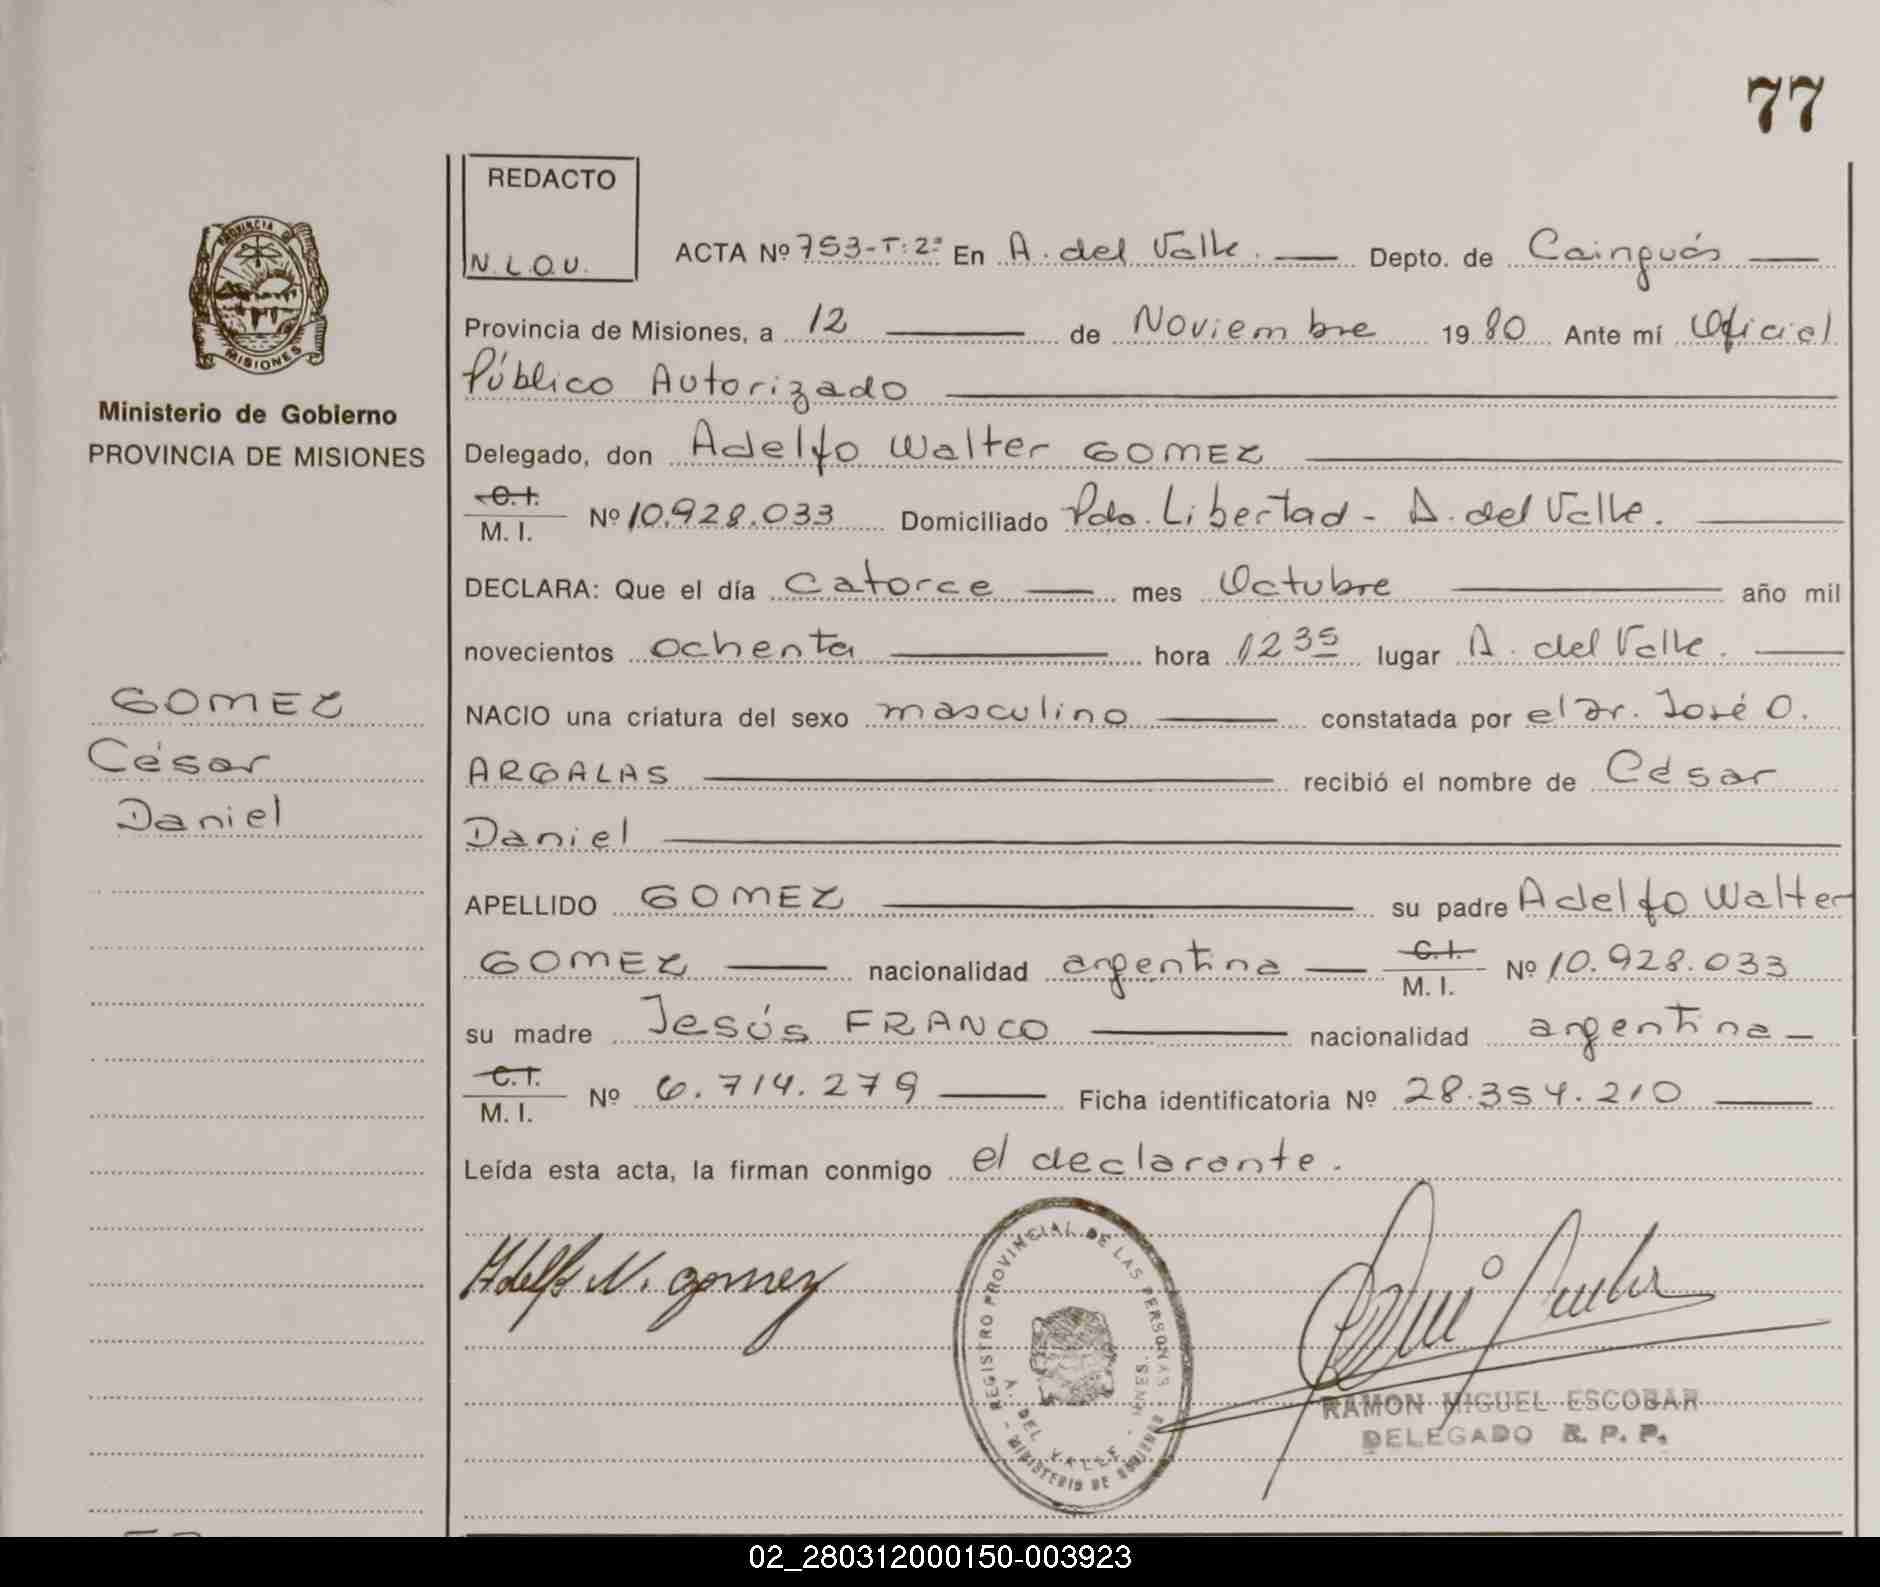 77
REDACTO
N.L.O.V.
ACTA Nº 753-T:2º En A. del Valle. Depto. de Cainguás
Provincia de Misiones, a 12 de Noviembre 1980 Ante mí Oficial
Público Autorizado
PROVINCIA DE
MISIONES
Ministerio de Gobierno
PROVINCIA DE MISIONES
Delegado, don Adelfo Walter GOMEZ
C.I.
M. I. Nº 10.928.033 Domiciliado Pdo. Libertad - A. del Valle.
DECLARA: Que el día Catorce mes Octubre año mil
novecientos ochenta hora 12 35 lugar A. del Valle.
GOMEZ
César
Daniel
NACIO una criatura del sexo masculino constatada por el Dr. José O.
ARGALAS recibió el nombre de César
Daniel
APELLIDO GOMEZ su padre Adelfo Walter
GOMEZ nacionalidad argentina C.I. M. I. Nº 10.928.033
su madre Jesús FRANCO nacionalidad argentina
C.I.
M. I. Nº 6.714.279 Ficha identificatoria Nº 28.354.210
Leída esta acta, la firman conmigo el declarante.
Adelfo W. gomez
REGISTRO PROVINCIAL DE LAS PERSONAS
A. DEL VALLE - MNES.
MINISTERIO DE GOBIERNO
RAMON MIGUEL ESCOBAR
DELEGADO R. P. P.
02_280312000150-003923